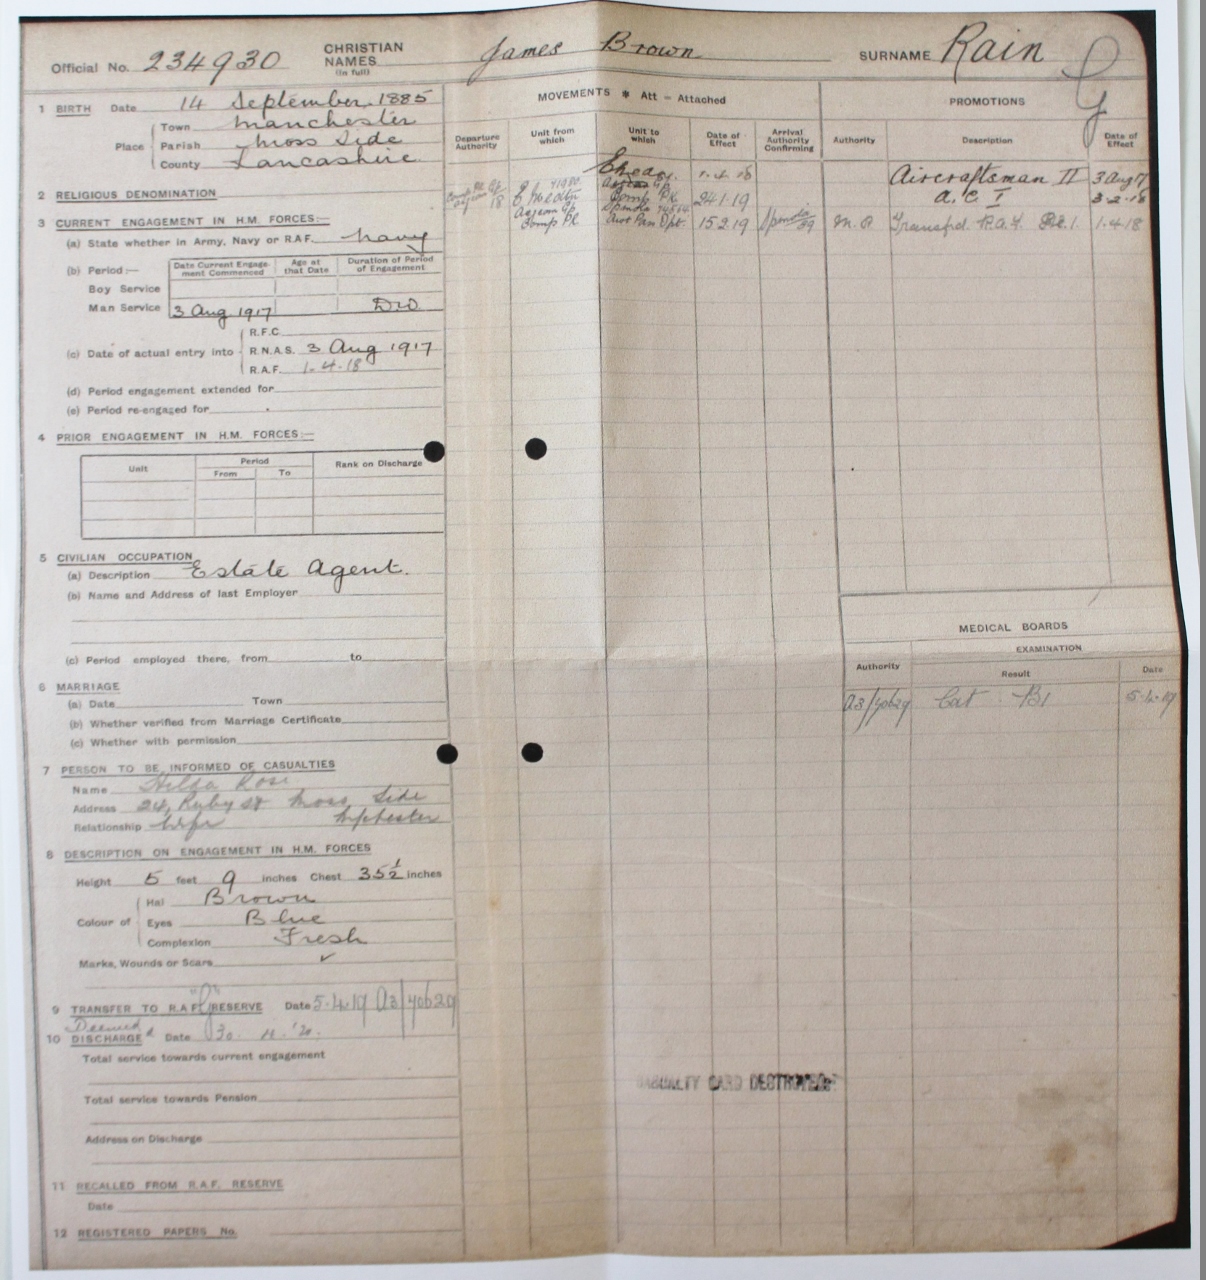 Official No. 234930 CHRISTIAN NAMES (in full) James Brown SURNAME Rain
1 BIRTH Date 14 September 1885
Place Town Manchester
Parish Moss Side
County Lancashire
2 RELIGIOUS DENOMINATION
3 CURRENT ENGAGEMENT IN H.M. FORCES:—
(a) State whether in Army, Navy or R.A.F. Navy
(b) Period:— Date Current Engagement Commenced Age at that Date Duration of Period of Engagement
Boy Service
Man Service 3 Aug 1917 DW
(c) Date of actual entry into R.F.C.
R.N.A.S. 3 Aug 1917
R.A.F. 1-4-18
(d) Period engagement extended for
(e) Period re-engaged for
4 PRIOR ENGAGEMENT IN H.M. FORCES:—
Unit Period Rank on Discharge
From To
5 CIVILIAN OCCUPATION
(a) Description Estate Agent.
(b) Name and Address of last Employer
(c) Period employed there, from to
6 MARRIAGE
(a) Date Town
(b) Whether verified from Marriage Certificate
(c) Whether with permission
7 PERSON TO BE INFORMED OF CASUALTIES
Name Hilda Rose
Address 24, Ruby St Moss Side
Relationship Wife M/chester
8 DESCRIPTION ON ENGAGEMENT IN H.M. FORCES
Height 5 feet 9 inches Chest 35½ inches
Colour of Hai Brown
Eyes Blue
Complexion Fresh
Marks, Wounds or Scars ✓
9 TRANSFER TO R.A.F. "G" RESERVE Date 5.4.19 A3/40629
10 Deemed DISCHARGEd Date 30. 4. '20.
Total service towards current engagement
Total service towards Pension
Address on Discharge
11 RECALLED FROM R.A.F. RESERVE
Date
12 REGISTERED PAPERS No.
MOVEMENTS * Att - Attached
Departure Authority Unit from which Unit to which Date of Effect Arrival Authority Confirming
1.4.18
24.1.19
Pk 15.2.19
PROMOTIONS
G
Authority Description Date of Effect
Aircraftsman II 3 Aug 17
A.C I 3-2-18
M.R Transfd. R.A.F. 1-4-18
MEDICAL BOARDS
EXAMINATION
Authority Result Date
A3/40629 Cat B1 5.4.19
CASUALTY CARD DESTROYED